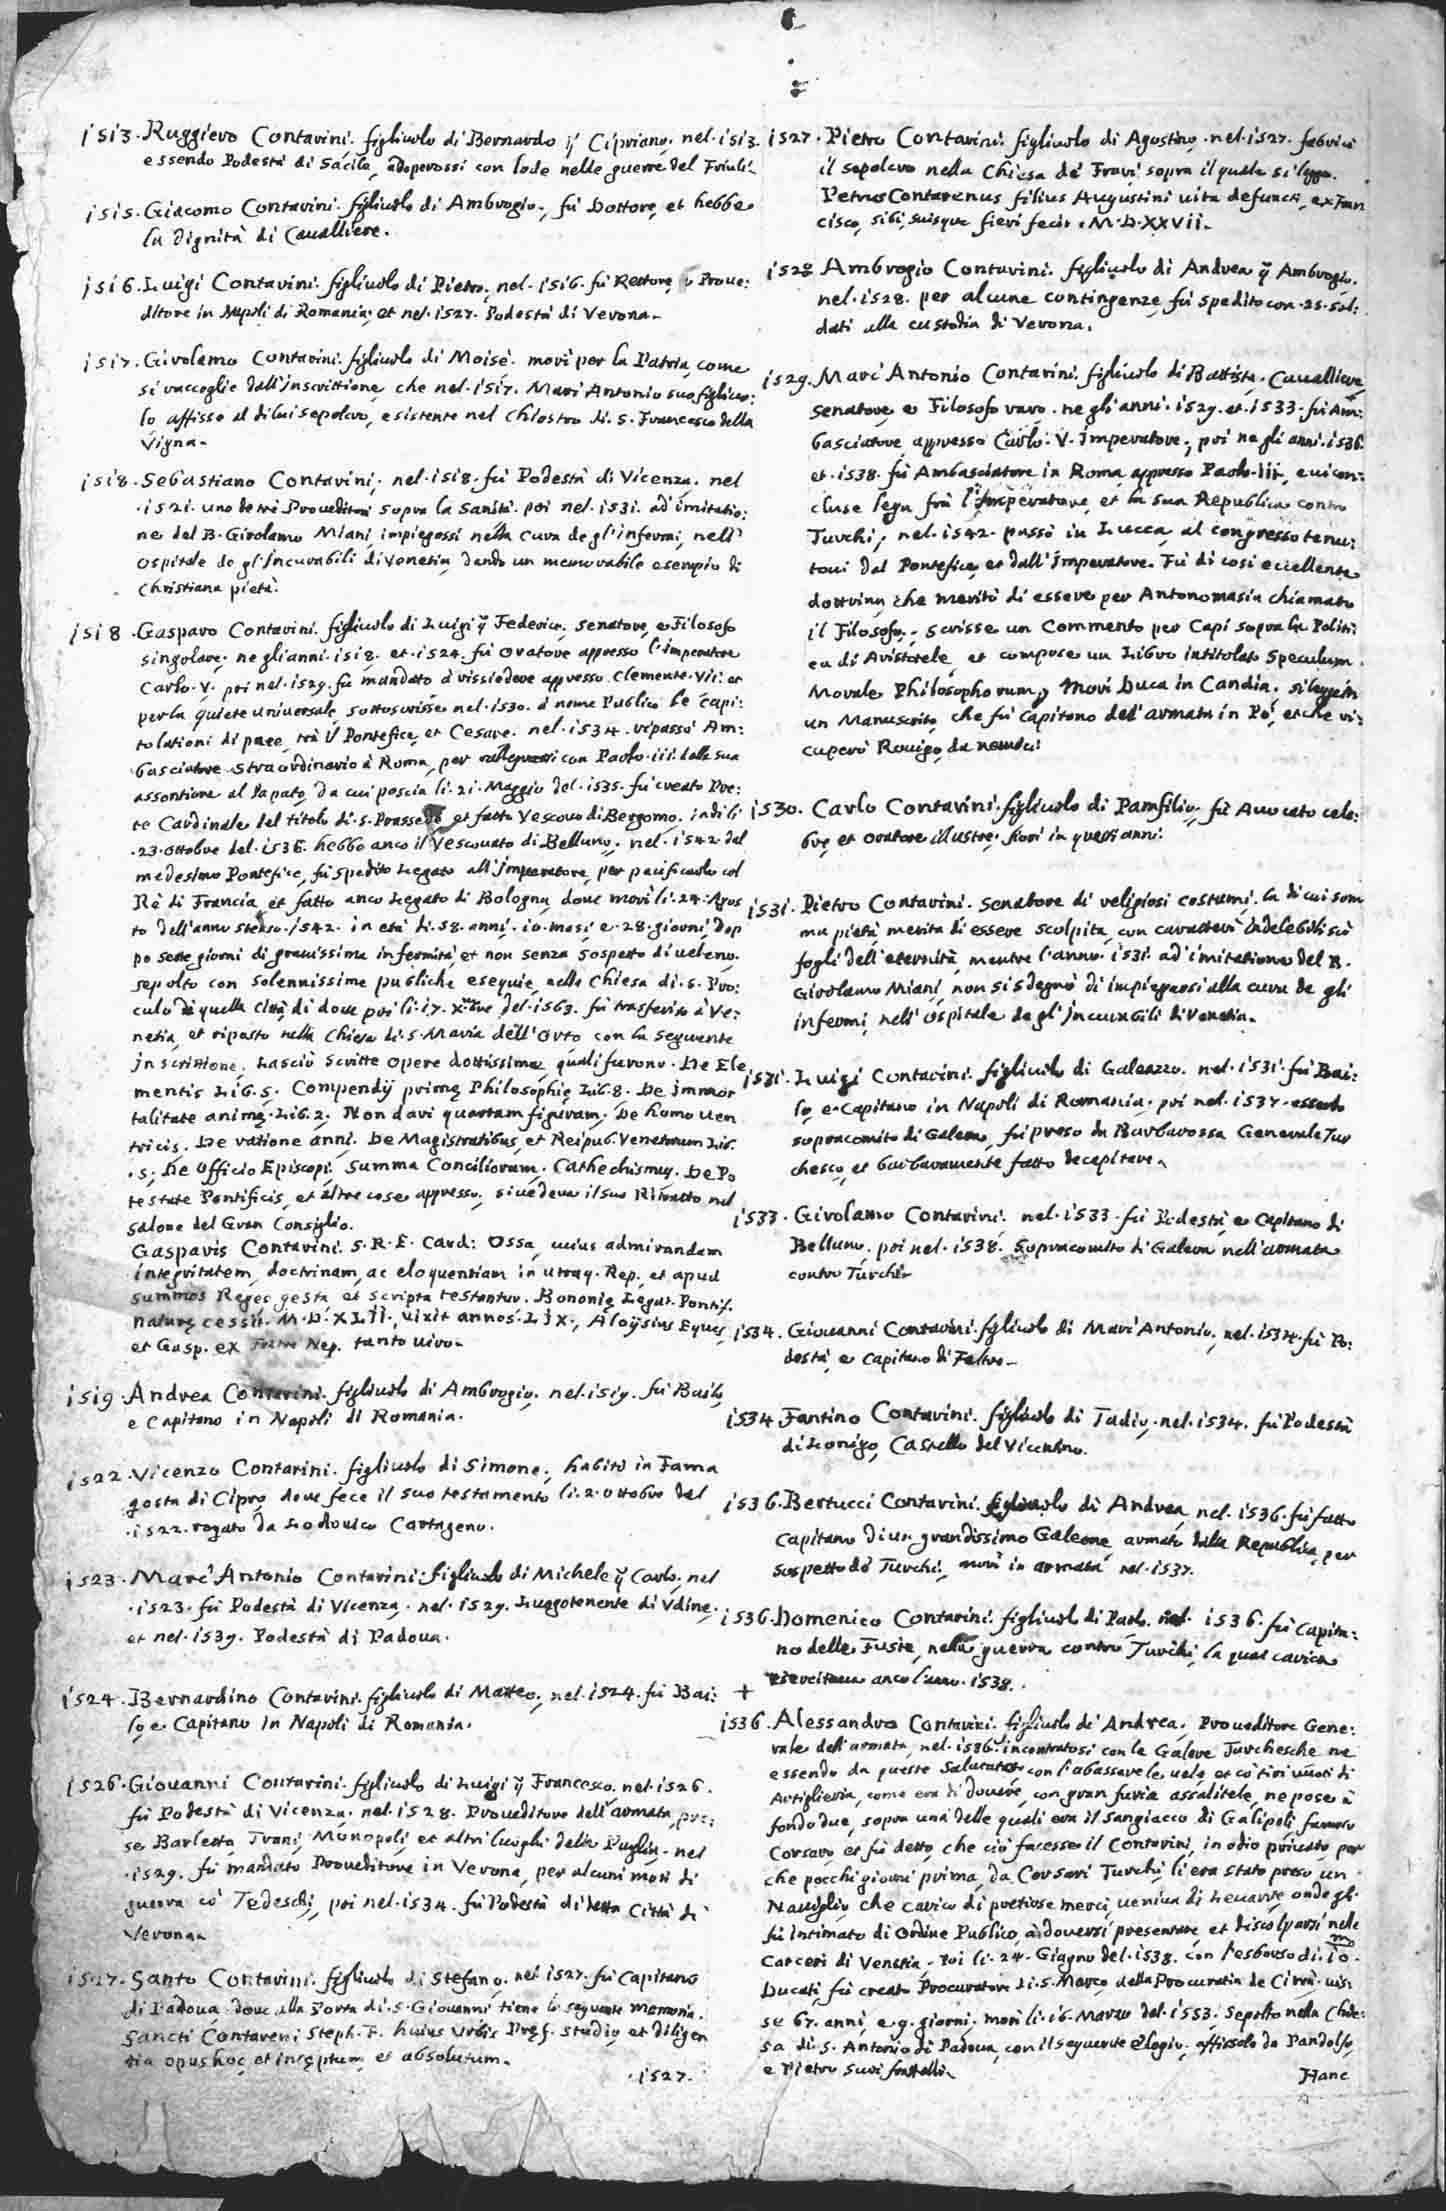 1513. Ruggiero Contarini. figliuolo di Bernardo q Cipriano, nel. 1513.
essendo Podestà di Sacile, adoperossi con lode nelle guerre del Friuli.
1515. Giacomo Contarini. figliuolo di Ambrogio, fù Dottore, et hebbe
la dignità di Caualliere.
1516. Luigi Contarini. figliuolo di Pietro, nel. 1516. fù Rettore, e Proue:
ditore in Napoli di Romania; et nel. 1527. Podestà di Verona.
1517. Girolamo Contarini. figliuolo di Moisè. morì per la Patria, come
si raccoglie dall'inscrittione, che nel. 1517. Marc'Antonio suo figliuo:
lo affisse al di lui sepolcro, esistente nel Chiostro di. S. Francesco della
Vigna.
1518. Sebastiano Contarini, nel. 1518. fù Podestà di Vicenza. nel
.1521. uno de trè Proueditori sopra la sanità. poi nel. 1531. ad imitatio:
ne del B. Girolamo Miani, impiegossi nella cura de gl'infermi, nell'
ospitale de gl'Incurabili di Venetia, dando un memorabile esempio di
Christiana pietà.
1518. Gasparo Contarini. figliuolo di Luigi q Federico, senatore, e Filosofo
singolare. ne gli anni. 1518. et. 1524. fù oratore appresso l'Imperatore
Carlo. V. poi nel. 1529. fù mandato à rissiedere appresso Clemente. Vii. et
per la quiete uniuersale, sottoscrisse nel. 1530. à nome Publico le capi:
tolationi di pace, trà il Pontefice, et Cesare. nel. 1534. ripassò Am:
basciatore straordinario à Roma, per rallegrarsi con Paolo. iii. della sua
assontione al Papato, da cui poscia li. 21. Maggio del. 1535. fù creato Pre:
te Cardinale del titolo di. S. Prassede et fatto Vescouo di Bergomo. indi li
.23. ottobre del. 1536. hebbe anco il Vescouato di Belluno. nel. 1542. dal
medesimo Pontefice, fù spedito Legato all'Imperatore, per pacificarlo col
Rè di Francia, et fatto anco Legato di Bologna, doue morì li. 24. Agos
to dell'anno stesso. 1542. in età di. 58. anni. 10. mesi e. 28. giorni, dop
po sette giorni di grauissima infermità, et non senza sospetto di ueleno.
sepolto con solennissime publiche esequie, nella Chiesa di. S. Pro:
culo di quella Città, di doue poi li. 17. Xmbre del. 1563. fù trasferito à Ve:
netia, et riposto nella Chiesa di. S. Maria dell'Orto con la seguente
inscrittione. Lasciò scritte opere dottissime, quali furono. De Ele
mentis Lib. 5. Compendij primę Philosophię Lib. 8. De immor
talitate animę. Lib. 2. Non dari quartam figuram. De homo uen
tricis. De ratione anni. De Magistratibus, et Reipub. Venetorum Lib.
.5. De officio Episcopi. Summa Conciliorum. Cathechismus. De Po
testate Pontificis, et altre cose appresso. si uedeua il suo Ritratto nel
salone del Gran Consiglio.
Gasparis Contarini. S. R. E. Card: Ossa, cuius admirandam
integritatem, doctrinam, ac eloquentiam in utraq. Rep. et apud
summos Reges gesta et scripta testantur. Bononię Legat. Pontif.
naturę cessit. M. D. XLii., uixit annos. Lix., Aloysius Eques
et Gasp. ex Fratre Nep. tanto uiro.
1519. Andrea Contarini. figliuolo di Ambrogio, nel. 1519. fù Bailo
e Capitano in Napoli di Romania.
1522. Vicenzo Contarini. figliuolo di Simone, habitò in Fama
gosta di Cipro, doue fece il suo testamento li. 2. ottobre del
.1522. rogato da Lodouico Cartageno.
1523. Marc'Antonio Contarini. figliuolo di Michele q Carlo, nel
.1523. fù Podestà di Vicenza. nel. 1529. Luogotenente di Vdine,
et nel. 1539. Podestà di Padoua.
1524. Bernardino Contarini. figliuolo di Matteo, nel. 1524. fù Bai:
lo, e Capitano in Napoli di Romania.
1526. Giouanni Contarini. figliuolo di Luigi q Francesco. nel. 1526.
fù Podestà di Vicenza. nel. 1528. Proueditore dell'armata, pre:
se Barletta, Trani, Monopoli, et altri luoghi della Puglia. nel
.1529. fù mandato Proueditore in Verona, per alcuni moti di
guerra co' Tedeschi, poi nel. 1534. fù Podestà di detta Città di
Verona.
1527. Santo Contarini. figliuolo di Stefano. nel 1527. fù Capitano
di Padoua, doue alla Porta di. S. Giouanni tiene la seguente memoria.
Sancti Contareni Steph. F. huius Vrbis Pręf. studio, et diligen
tia opus hoc, et incęptum, et absolutum.
.1527.
1527. Pietro Contarini. figliuolo di Agostino. nel. 1527. fabricò
il sepolcro nella Chiesa de' Frari, sopra il quale si legge.
Petrus Contarenus filius Augustini uita defuncti, ex Fran
cisco, sibi, suisque fieri fecit. M. D. XXVii.
1528 Ambrogio Contarini. figliuolo di Andrea q Ambrogio.
nel. 1528. per alcune contingenze, fù spedito con. 25. sol:
dati alla custodia di Verona.
1529. Marc'Antonio Contarini. figliuolo di Battista. Caualliere
senatore, e Filosofo raro. ne gli anni. 1529. et. 1533. fù Am:
basciatore appresso Carlo. V. Imperatore, poi ne gli anni. 1536.
et. 1538. fù Ambasciatore in Roma appresso Paolo. iii. e ui con:
cluse lega frà l'Imperatore, et la sua Republica contro
Turchi, nel. 1542. passò in Lucca, al congresso tenu:
toui dal Pontefice, et dall'Imperatore. Fù di così eccellente
dottrina, che meritò di essere per Antonomasia chiamato
il Filosofo. scrisse un Commento per Capi sopra la Politi:
ca di Aristotele, et compose un Libro intitolato Speculum
Morale Philosophorum, morì Duca in Candia. si legge in
un Manuscrito, che fù Capitano dell'armata in Pò, et che ri:
cuperò Rouigo, da nemici.
1530. Carlo Contarini. figliuolo di Pamfilio, fù Auocato cele:
bre, et oratore illustre. fiorì in questi anni.
1531. Pietro Contarini. senatore di religiosi costumi. la di cui som
ma pietà, merita di essere scolpita, con caratteri indelebili sù i
fogli dell'eternità, mentre l'anno. 1531. ad imitatione del B.
Girolamo Miani, non si sdegnò di impiegarsi alla cura de gli
infermi, nell'ospitale de gl'Incurabili di Venetia.
1531. Luigi Contarini. figliuolo di Galeazzo. nel. 1531. fù Bai:
lo, e Capitano in Napoli di Romania. poi nel. 1537. essendo
sopracomito di Galera, fù preso da Barbarossa Generale Tur
chesco, et barbaramente fatto decapitare.
1533. Girolamo Contarini. nel. 1533. fù Podestà, e Capitano di
Belluno. poi nel. 1538. Sopracomito di Galera nell'armata
contro Turchi.
1534. Giouanni Contarini. figliuolo di Marc'Antonio, nel. 1534. fù Po:
destà, e Capitano di Feltre.
1534 Fantino Contarini. figliuolo di Tadio. nel. 1534. fù Podestà
di Lonigo, Castello del Vicentino.
1536. Bertucci Contarini. figliuolo di Andrea, nel. 1536. fù fatto
Capitano di un grandissimo Galeone, armato dalla Republica, per
sospetto de' Turchi, morì in armata nel. 1537.
1536. Domenico Contarini. figliuolo di Paolo. nel. 1536. fù Capita:
no delle Fuste, nella guerra contro Turchi, la qual carica
+ esercitaua anco l'anno. 1538.
1536. Alessandro Contarini. figliuolo di Andrea. Proueditore Gene:
rale dell'armata, nel. 1536. incontratosi con le Galere Turchesche, ne
essendo da queste salutato con l'abassare le uele, et co' tiri uuoti di
Artiglieria, come era di douere, con gran furia assalitele, ne pose à
fondo due, sopra una delle quali era il Sangiacco di Galipoli, famoso
Corsaro, et fù detto, che ciò facesse il Contarini, in odio priuato, per
che pocchi giorni prima, da Corsari Turchi, li era stato preso un
Nauiglio, che carico di pretiose merci, ueniua di Leuante, onde gli
fù intimato di Ordine Publico, à douersi presentare, et discolparsi nelle
Carceri di Venetia. Poi li. 24. Giugno del. 1538. con l'esborso di. 10.m
Ducati fù creato Procuratore di. S. Marco, della Procuratia de Citrà. uis:
se 67. anni, e. 9. giorni, morì li. 16. Marzo del. 1553. Sepolto nella Chie:
sa di. S. Antonio di Padoua, con il seguente Elogio, affissole da Pandolfo,
e Pietro suoi fratelli.
Hanc